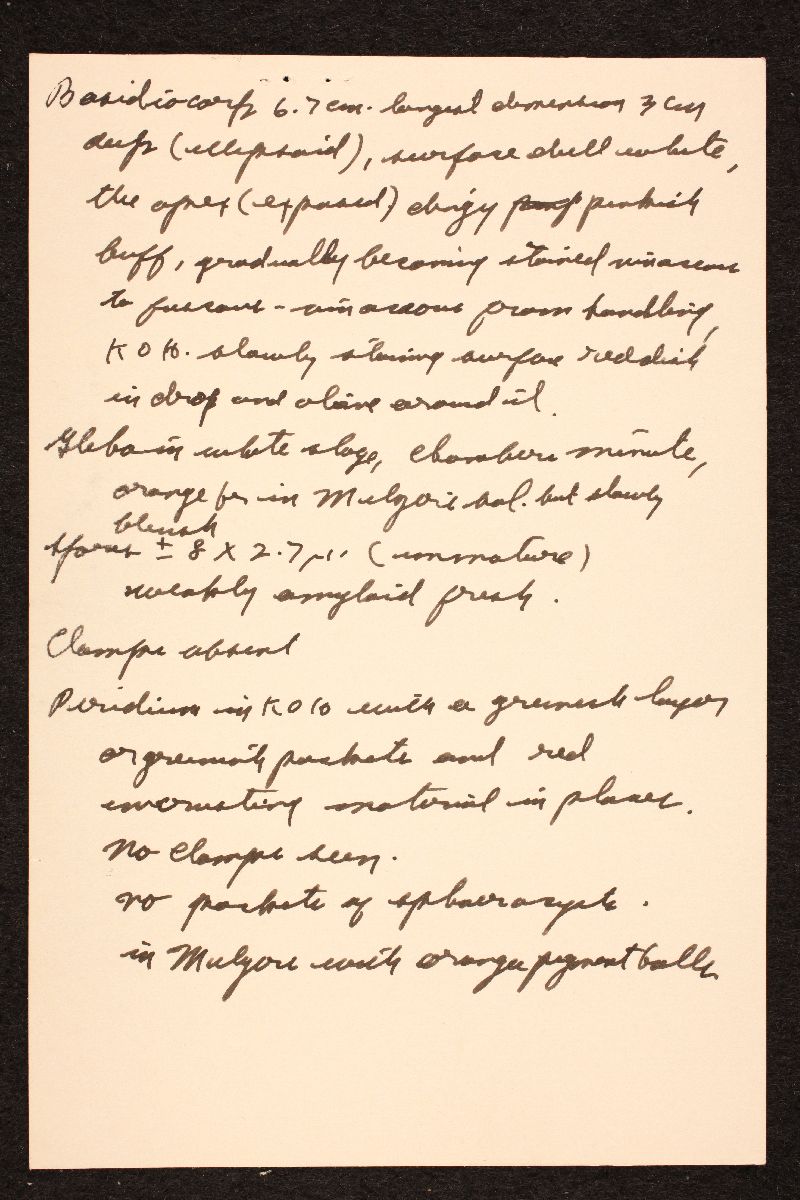 Basidiocarp 6.7 cm. longest dimension 3 cm
deep (ellipsoid), surface dull white,
the apex (exposed) dingy pinkish
buff, gradually becoming stained vinaceous
to fuscous-vinaceous from handling,
KOH. slowly staining surface reddish
in drop and olive around it.
Gleba in white stage, chambers minute,
orange in Melzers sol. but slowly
bluish
Spores ± 8 X 2.7 µ. (immature)
weakly amyloid fresh.
Clamps absent
Peridium in KOH with a greenish layer
or greenish pockets and red
incrusting material in places.
No clamps seen.
no pockets of sphaerocysts.
in Melzers with orange pigment balls